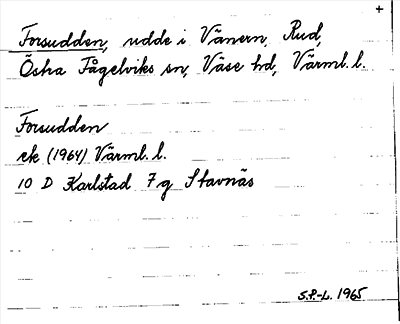 +
Forsudden, udde i Vänern, Rud,
Östra Fågelviks sn, Väse hd, Värml. l.
Forsudden
ek (1964) Värml. l.
10 D Karlstad 7 g Stavnäs
S.P.-L. 1965